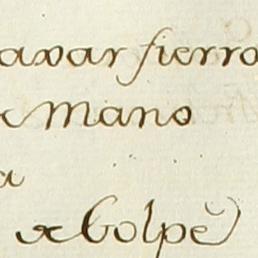 avar fierro
Mano
a
a Golpè)